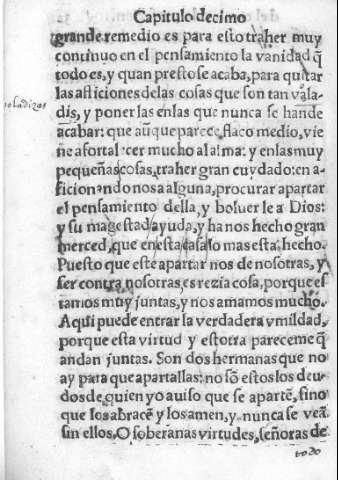 Capitulo decimo
grande remedio es para esto traher muy
continuo en el pensamiento la vanidad q̃
todo es, y quan presto se acaba, para quitar
las aficiones delas cosas que son tan vala-
dis, y ponerlas enlas que nunca se hande
acabar: que aũque parece flaco medio, vie
ñe afortalecer mucho al alma: y enlas muy
pequeñas cosas, traher gran cuydado: en a-
ficionando nos a alguna, procurar apartar
el pensamiento della, y boluerle a Dios:
y su magestad ayuda, y ha nos hecho gran
merced, que en esta casa lo mas esta hecho.
Puesto que este apartar nos de nosotras, y
ser contra nosotras, es rezia cosa, porque es
tamos muy juntas, y nos amamos mucho.
Aqui puede entrar la verdadera vmildad,
porque esta virtud y estotra pareceme q̃
andan juntas. Son dos hermanas que no
ay para que apartallas: no sõ estos los deu-
dos de quien yo auiso que se apartẽ, sino
que los abracẽ y los amen, y nunca se veã
sin ellos, O soberanas virtudes, señoras de
todo